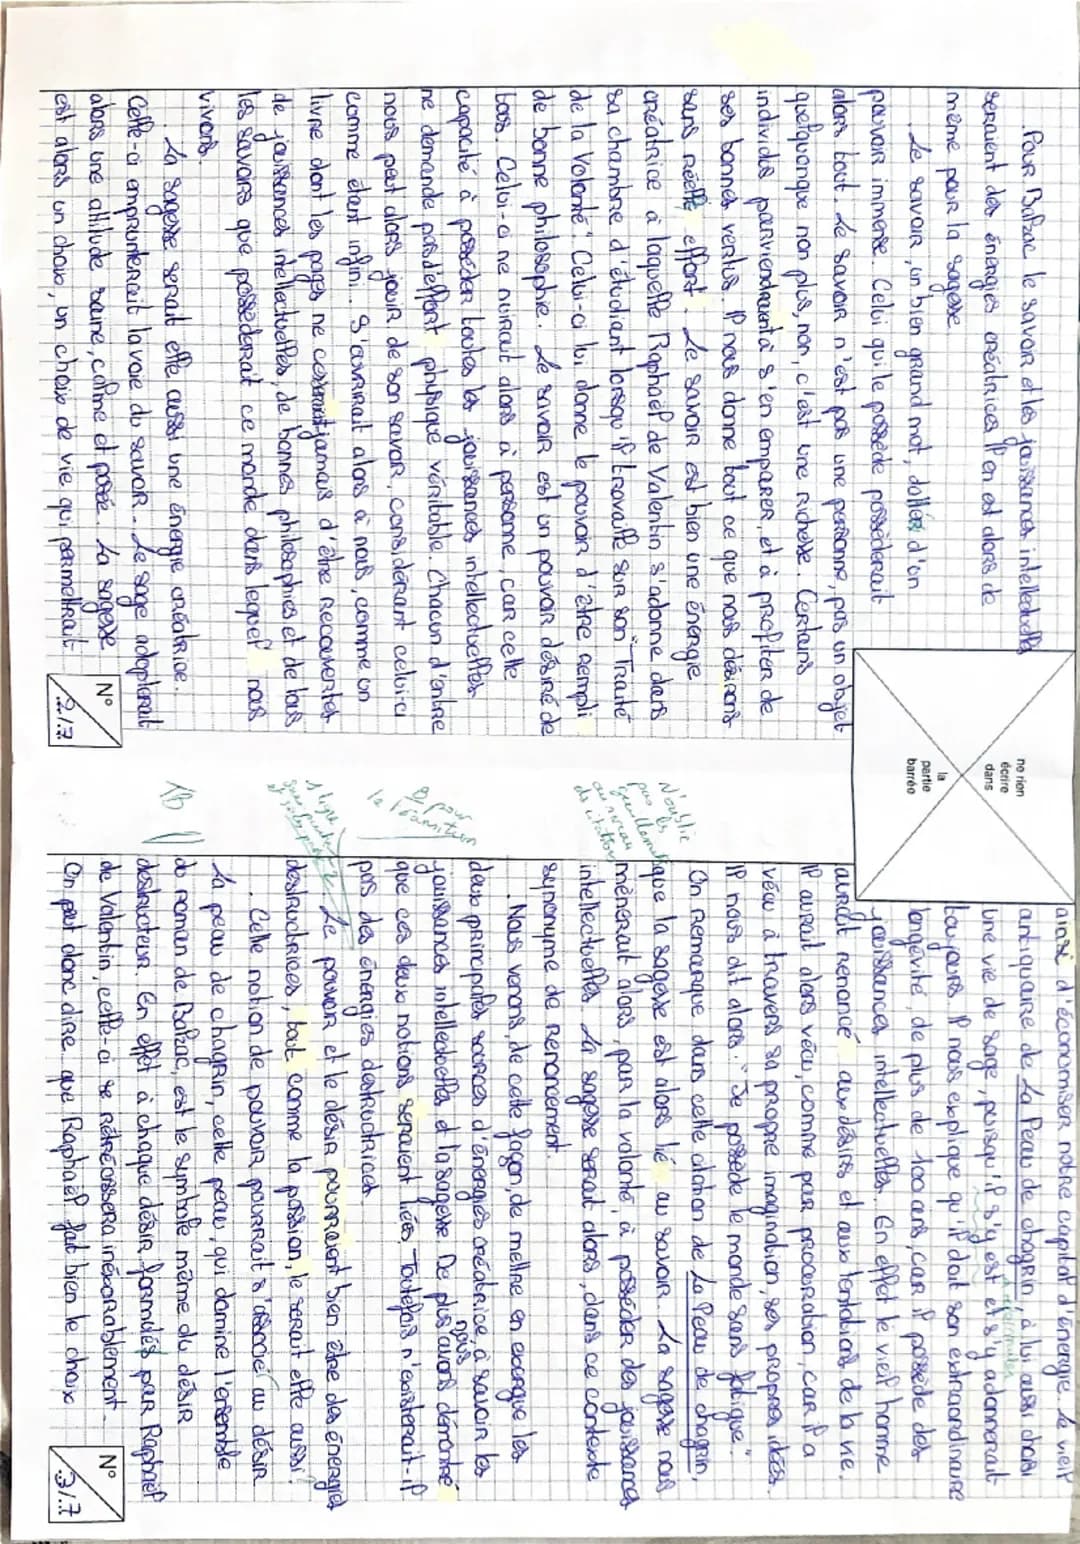 .Pour Balzac le savoir et les jouissances intellectuelles
seraient des énergies créatrices. Il en est alors de
même pour la sagesse
. Le savoir, un bien grand mot, d'un
pouvoir immense. Celui qui le possède possèderait
alors tout. Le savoir n'est pas une personne, pas un objet
quelquonque non plus, non, c'est une richesse. Certains
individus parviendraient à s'en emparer, et à profiter de
ses bonnes vertus. Il nous donne tout ce que nous désirons
sans réelle effort. Le savoir est bien une énergie
créatrice à laquelle Raphaël de Valentin s'adonne dans
sa chambre d'étudiant lorsqu'il travaille sur son "Traité
de la Volonté". Celui-ci lui donne le pouvoir d'être rempli
de bonne philosophie. Le savoir est un pouvoir désiré de
tous. Celui-ci ne nuirait alors à personne, car cette
capacité à posséder toutes les jouissances intellectuelles
ne demande pas d'effort physique véritable. Chacun d'entre
nous peut alors jouir de son savoir, considérant celui ci
comme étant infini... S'ouvrirait alors à nous, comme un
livre dont les pages ne cesseraient jamais d'être recouvertes
de jouissances intellectuelles, de bonnes philosophies et de tous
les savoirs que possèderait ce monde dans lequel nous
vivons.
La sagesse serait elle aussi une énergie créatrice.
Celle-ci emprunterait la voie du savoir. Le sage adopterait
alors une attitude saine, calme et posée. La sagesse
est alors un choix, un choix de vie qui permettrait
N°
2/7
ne rien
écrire
dans
la
partie
barrée
ainsi d'économiser notre capital d'énergie. Le vieil
antiquaire de La Peau de chagrin, à lui aussi choisi
une vie de sage, puisqu'il s'y est et s'y adonnerait
toujours. Il nous explique qu'il doit son extraordinaire
longévité, de plus de 100 ans, car il possède des
jouissances intellectuelles. En effet le vieil homme
aurait renoncé aux désirs et aux tentations de la vie.
Il aurait alors vécu, comme par procuration, car il a
vécu à travers sa propre imagination, ses propres idées.
Il nous dit alors : "Je possède le monde sans fatigue".
On remarque dans cette citation de La Peau de chagrin,
que la sagesse est alors lié au savoir. La sagesse nous
mènerait alors, par la volonté, à posséder des jouissances
intellectuelles. La sagesse serait alors, dans ce contexte
synonyme de renoncement.
N'oublie
pas les
guillemets
au niveau
de citation
. Nous venons, de cette façon, de mettre en exergue les
deux principales sources d'énergies créatrice, à savoir les
jouissances intellectuelles et la sagesse. De plus nous avons démontré
que ces deux notions seraient liées. Toutefois n'existerait-il
pas des énergies destructrices.
B pour
la transition
Le pouvoir et le désir pourraient bien être des énergies
destructrices, tout comme la passion, le serait elle aussi.
. Cette notion de pouvoir pourrait s'associer au désir
La peau de chagrin, cette peau, qui domine l'ensemble
du roman de Balzac, est le symbole même du désir
destructeur. En effet à chaque désir formulés par Raphaël
de Valentin, celle-ci se rétrécissera inéxorablement.
On peut donc dire que Raphaël fait bien le choix
TB
N°
3/7